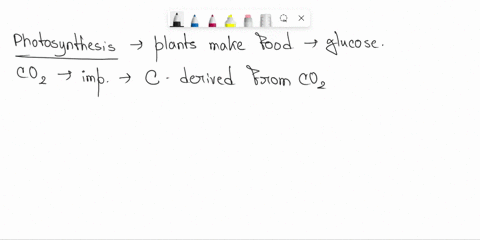 Photosynthesis → plants make food → glucose.
CO₂ → imp. → C. derived from CO₂